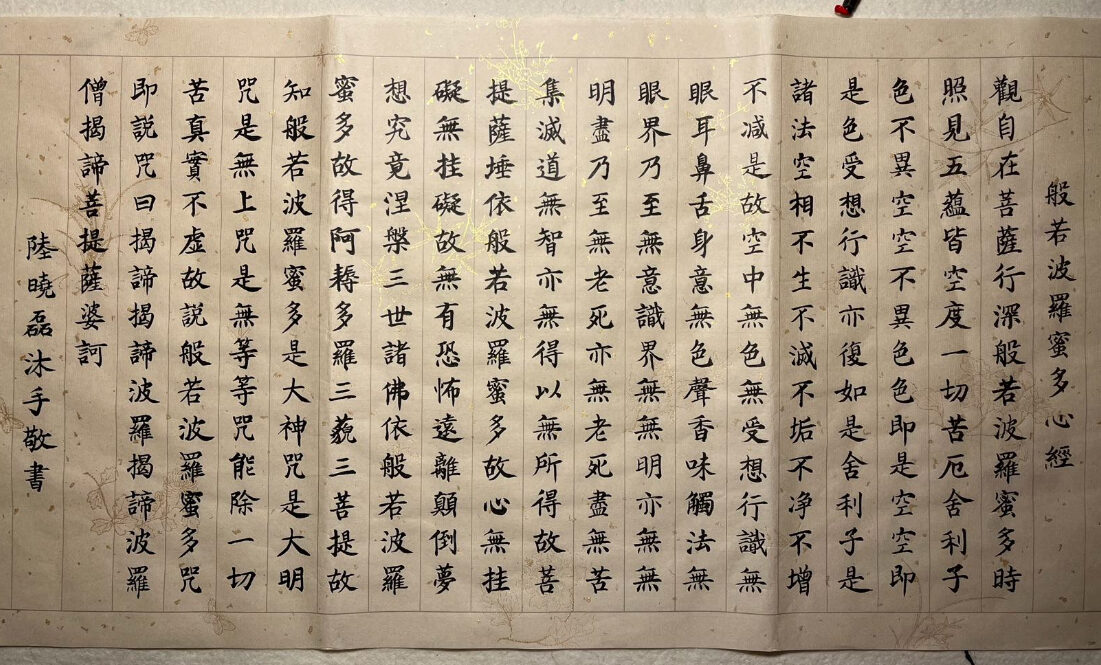 般若波羅蜜多心經
觀自在菩薩行深般若波羅蜜多時
照見五蘊皆空度一切苦厄舍利子
色不異空空不異色色即是空空即
是色受想行識亦復如是舍利子是
諸法空相不生不滅不垢不净不增
不减是故空中無色無受想行識無
眼耳鼻舌身意無色聲香味觸法無
眼界乃至無意識界無無明亦無無
明盡乃至無老死亦無老死盡無苦
集滅道無智亦無得以無所得故菩
提薩埵依般若波羅蜜多故心無挂
礙無挂礙故無有恐怖遠離顛倒夢
想究竟涅槃三世諸佛依般若波羅
蜜多故得阿耨多羅三藐三菩提故
知般若波羅蜜多是大神咒是大明
咒是無上咒是無等等咒能除一切
苦真實不虛故説般若波羅蜜多咒
即説咒曰揭諦揭諦波羅揭諦波羅
僧揭諦菩提薩婆訶
陸曉磊沐手敬書